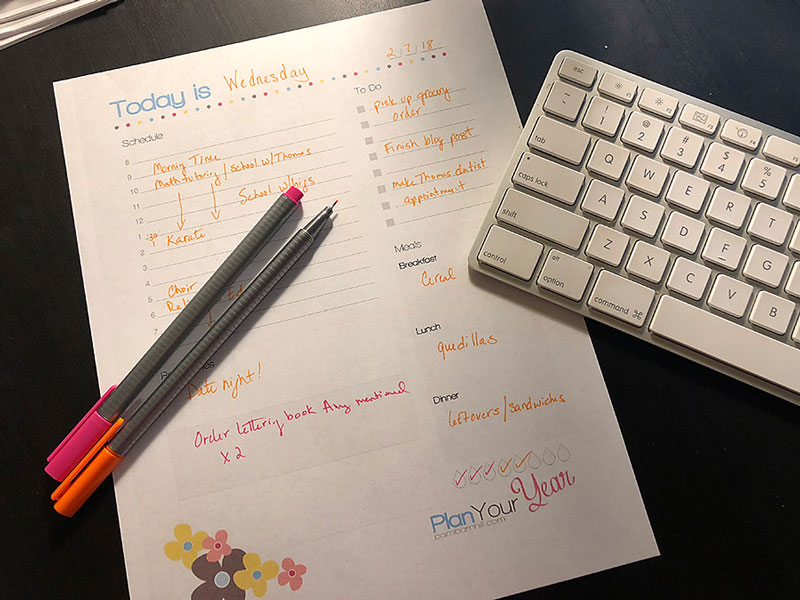 Today is Wednesday
2/7/18
Schedule
8
9 Morning Time
10 Math tutoring / school w/Thomas
11 School w/bigs
12
1 :30 Karate
2
3
4
5 Choir
6
7
Date night!
Order lettering book Amy mentioned
x 2
To Do
pick up grocery
order
Finish blog post
make Thomas dentist
appointment
Meals
Breakfast
Cereal
Lunch
quedillas
Dinner
leftovers/sandwiches
PlanYourYear
pambarnhill.com
esc
F1
F2
F3
F4
F5
~
`
!
1
@
2
#
3
$
4
%
5
tab
Q
W
E
R
T
caps lock
A
S
D
F
G
shift
Z
X
C
V
B
control
alt
option
command ⌘